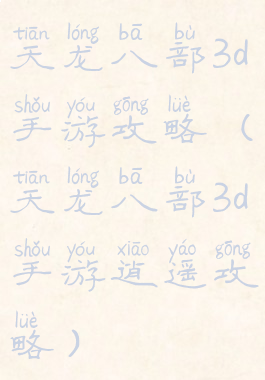 tiān lóng bā bù
天龙八部3d
shǒu yóu gōng lüè
手游攻略（
tiān lóng bā bù
天龙八部3d
shǒu yóu xiāo yáo gōng
手游逍遥攻
lüè
略）